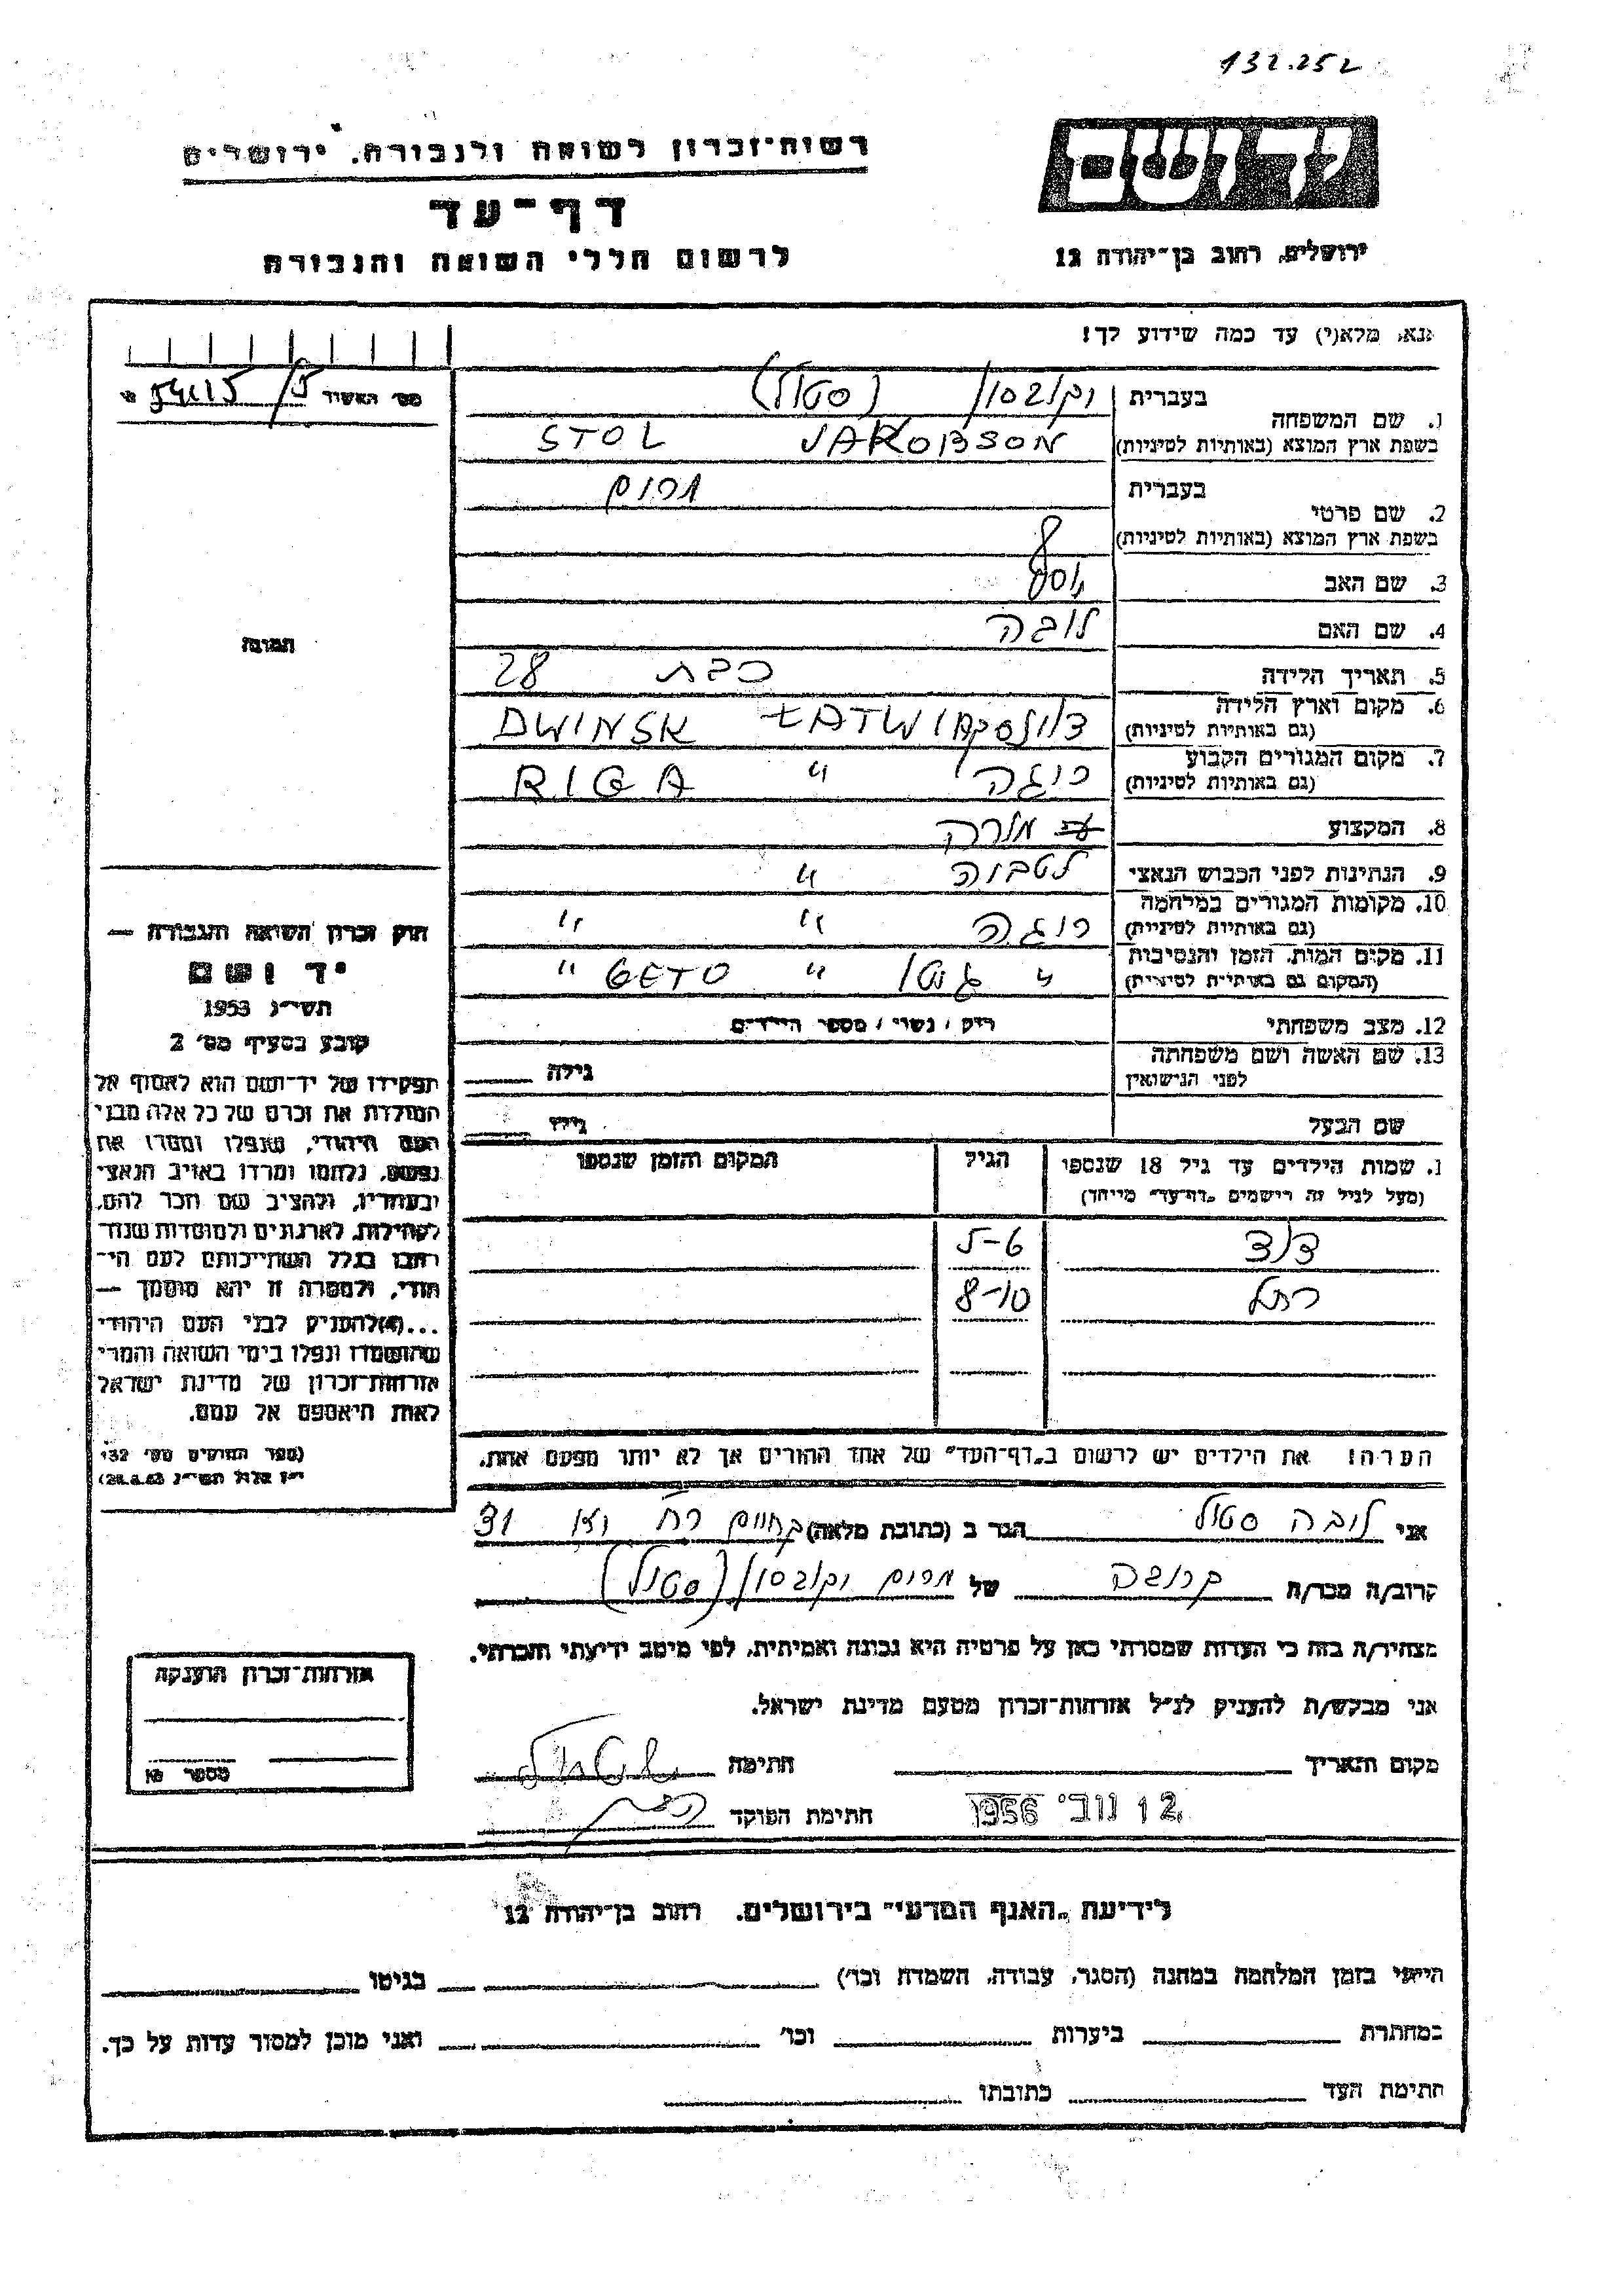 132.252
רשות־זכרון לשואה ולגבורה, ירושלים
יד ושם
דף־עד
לרשום חללי השואה והגבורה
ירושלים, רחוב בן־יהודה 12
נא מלא(י) עד כמה שידוע לך!
מס' האשור
1. שם המשפחה
בעברית יקובסון (סטול)
בשפת ארץ המוצא (באותיות לטיניות) JAKOBSON STOL
2. שם פרטי
בעברית מרים
בשפת ארץ המוצא (באותיות לטיניות)
3. שם האב יוסף
4. שם האם ליבה
תמונה
5. תאריך הלידה כבת 28
6. מקום וארץ הלידה
(גם באותיות לטיניות) דוינסק ŁATWIA DWINSK
7. מקום המגורים הקבוע
(גם באותיות לטיניות) ריגה " RIGA
8. המקצוע מורה
9. הנתינות לפני הכבוש הנאצי לטביה "
10. מקומות המגורים במלחמה
(גם באותיות לטיניות) ריגה " "
11. מקום המות, הזמן והנסיבות
(המקום גם באותיות לטיניות) " גטו " GETO "
12. מצב משפחתי רוק / נשוי / מספר הילדים
13. שם האשה ושם משפחתה
לפני הנישואין גילה
שם הבעל גילו
1. שמות הילדים עד גיל 18 שנספו הגיל המקום והזמן שנספו
(מעל לגיל זה רישמים „דף־עד" מייחד)
דוד 5-6
רחל 8-10
הערה! את הילדים יש לרשום ב„דף־העד" של אחד ההורים אך לא יותר מפעם אחת.
חוק זכרון השואה והגבורה —
יד ושם
תשי"ג 1953
קובע בסעיף מס' 2
תפקידו של יד־ושם הוא לאסוף אל
המולדת את זכרם של כל אלה מבני
העם היהודי, שנפלו ומסרו את
נפשם, נלחמו ומרדו באויב הנאצי
ובעוזריו, ולהציב שם וזכר להם,
לקהילות, לארגונים ולמוסדות שנח־
רבו בגלל השתייכותם לעם הי־
הודי, ולמטרה זו יהא מוסמך —
...(4)להעניק לבני העם היהודי
שהושמדו ונפלו בימי השואה והמרי
אזרחות־זכרון של מדינת ישראל
לאות היאספם אל עמם.
(ספר החוקים מס' 132
י"ז אלול תשי"ג 28.8.53)
אני ליבה סטול הגר ב (כתובת מלאה) 31
קרוב/ה מכר/ה קרובה של מרים יקובסון (סטול)
מצהיר/ה בזה כי העדות שמסרתי כאן על פרטיה היא נכונה ואמיתית, לפי מיטב ידיעתי והכרתי.
אני מבקש/ת להעניק לנ"ל אזרחות־זכרון מטעם מדינת ישראל.
מקום ותאריך חתימה
12 נוב' 1956 חתימת הפוקד
אזרחות־זכרון הוענקה
מספר
לידיעת „האגף המדעי" בירושלים. רחוב בן־יהודה 12
הייתי בזמן המלחמה במחנה (הסגר, עבודה, השמדה וכו') בגיטו
במחתרת ביערות וכו' ואני מוכן למסור עדות על כך.
חתימת העד כתובתו